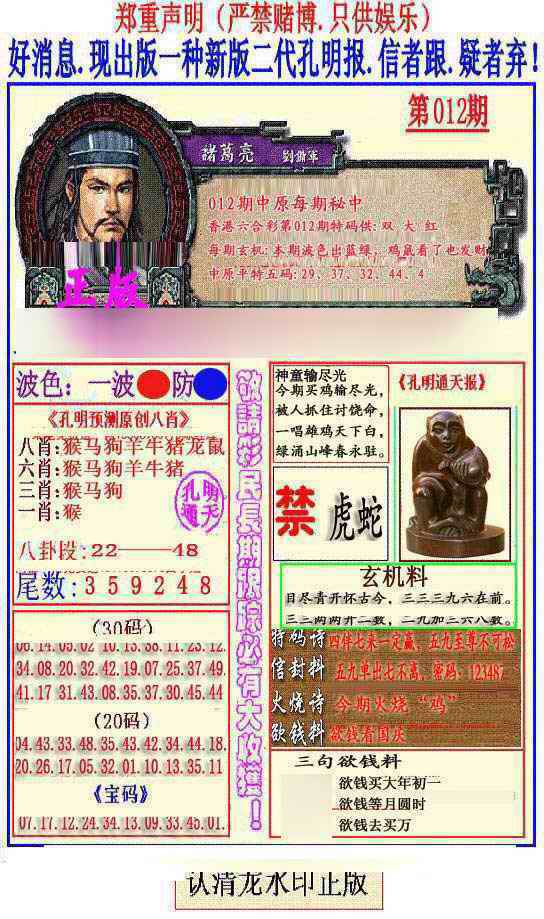 郑重声明（严禁赌博.只供娱乐）
好消息.现出版一种新版二代孔明报.信者跟.疑者弃！
第012期
諸葛亮 劉備軍
012期中原每期秘中
香港六合彩第012期特码供:双 大 红
每期玄机:本期波色出蓝绿，鸡鼠看了也发财
中原平特五码:29、37、32、44、4
正版
波色：一波 防
《孔明预测原创八肖》
八肖:猴马狗羊牛猪龙鼠
六肖:猴马狗羊牛猪
三肖:猴马狗
一肖:猴
孔明
通天
八卦段:22——48
尾数:359248
(30码)
06.14.05.02.10.13.38.11.23.12.
34.08.20.32.42.19.07.25.37.49.
41.17 31.43.08.35.37.30.45.44
(20码)
04.43.33.48.35.43.42.34.44.18.
20.26.17.05.32.01.10.13.35.11
《宝码》
07.17.12.24.34.13.09.33.45.01.
敬請彩民長期跟踪必有大收獲！
神童输尽光
今期买鸡输尽光，
被人抓住讨饶命，
一唱雄鸡天下白，
绿涌山峰春永驻。
《孔明通天报》
禁 虎蛇
玄机料
目尽青开怀古今，三三三九六在前。
三三两两开二数，二九加二六八数。
特码诗 四伴七来一定赢、五九至尊不可松
信封料 五九单出七不离，密码：123487
火烧诗 今期火烧“鸡”
欲钱料 欲钱看国庆
三句欲钱料
欲钱买大年初一
欲钱等月圆时
欲钱去买万
认清龙水印正版